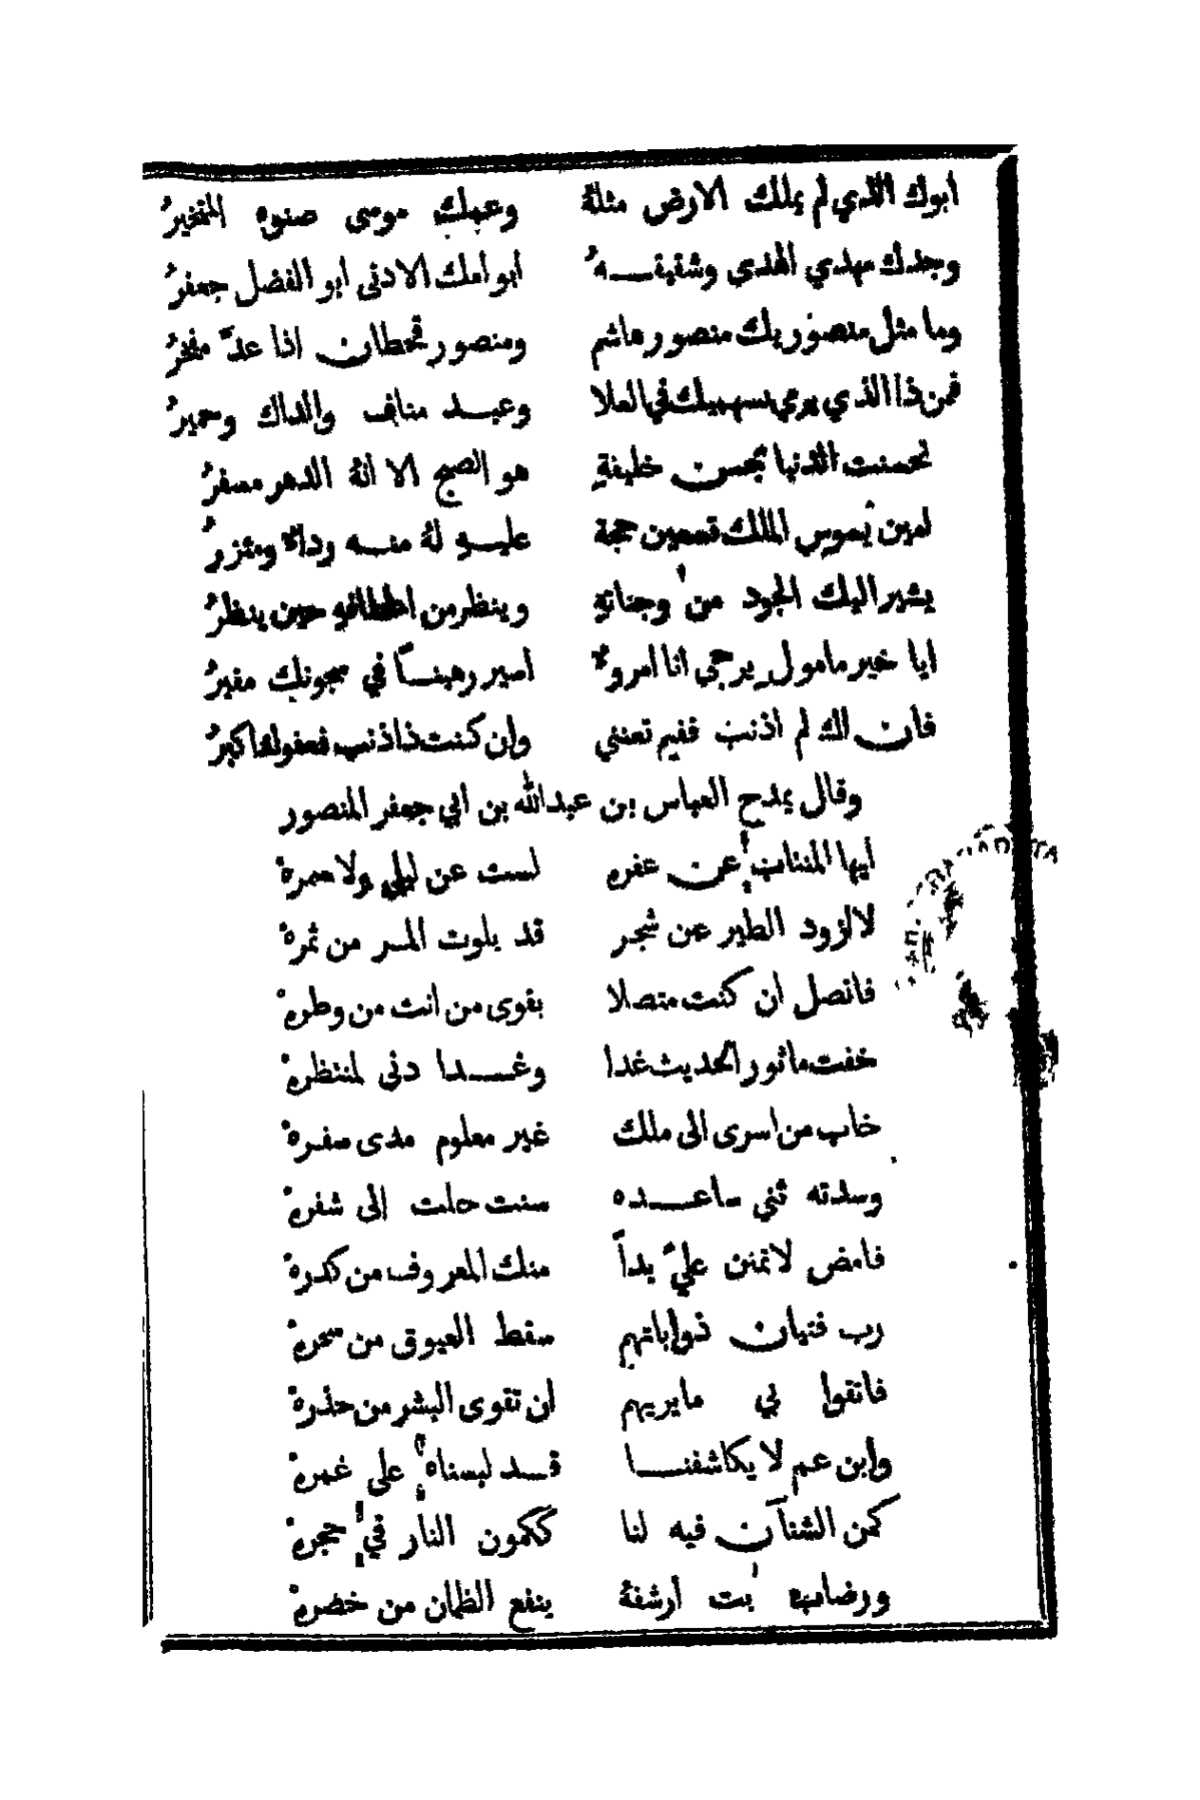 ابوك الذي لم يملك الارض مثلهُ وعمك موسى صنوه المتخيرُ
وجدك مهدي الهدى وشقيقـــهُ ابو امك الادنى ابو الفضل جعفرُ
وما مثل منصوريك منصور هاشم ومنصور قحطان اذا عدّ مفخرُ
فمن ذا الذي يرمي بسهميك في العلا وعبــد مناف والداك وحميرُ
تحسنت الدنيا بحسن خليفةٍ هو الصبح الا انهُ الدهر مسفرُ
امين يسوس الملك تسعين حجة عليــهِ لهُ منــه رداءٌ ومئزرُ
يشير اليك الجود من وجناتهِ وينظر من اعطافهِ حين ينظرُ
ايا خير مامول يرجى انا امروءٌ اسير رهينــاً في سجونك مقبرُ
فان اك لم اذنب ففيم تعنتي وان كنت ذا ذنب فعفوك اكبرُ
وقال يمدح العباس بن عبدالله بن ابي جعفر المنصور
ايها المنتاب عن عفره لست عن ليلي ولا سمرهْ
لا ازود الطير عن شجر قد بلوت المــر من ثمرهْ
فاتصل ان كنت متصلا بقوى من انت من وطرهْ
خفت ماثور الحديث غدا وغــــدا دنى لمنتظرهْ
خاب من اسرى الى ملك غير معلوم مدى سفرهْ
وسدته ثني ساعـــده سنت حلت الى شفرهْ
فامض لا تمنن عليّ يداً منك المعروف من كدرهْ
رب فتيان ذواباتهم سقط العيوق من سحرهْ
فاتقوا بي مايريبهم ان تقوى الشر من حذرهْ
وابن عم لا يكاشفنــــا قــد لبسناه على غمرهْ
كمن الشنآن فيه لنا ككمون النار في حجرهْ
ورضاب بت ارشفهُ ينقع الظمان من خضرهْ